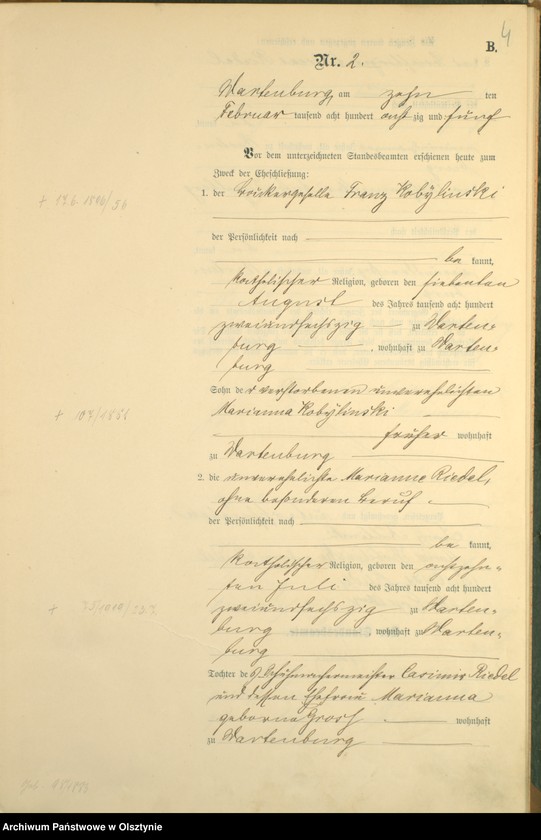 4
B.
Nr. 2.
Wartenburg, am zehn ten
Februar tausend acht hundert acht zig und fünf
Vor dem unterzeichneten Standesbeamten erschienen heute zum
Zweck der Eheschließung:
1. der Bäckergeselle Franz Kobylinski
der Persönlichkeit nach
be kannt,
katholischer Religion, geboren den siebenten
August des Jahres tausend acht hundert
zweiundsechszig zu Warten-
burg, wohnhaft zu Warten-
burg
Sohn der verstorbenen unverehelichten
Marianna Kobylinski
früher wohnhaft
zu Wartenburg
2. die unverehelichte Marianne Riedel,
ohne besonderen Beruf
der Persönlichkeit nach
be kannt,
katholischer Religion, geboren den achtzehn-
ten Juli des Jahres tausend acht hundert
zweiundsechszig zu Warten-
burg, wohnhaft zu Warten-
burg
Tochter des Schuhmachermeister Casimir Riedel
und dessen Ehefrau Marianna
geborne Grosz wohnhaft
zu Wartenburg
Archiwum Państwowe w Olsztynie